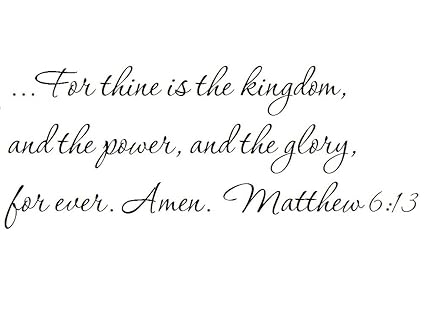 ...For thine is the kingdom,
and the power, and the glory,
for ever. Amen. Matthew 6:13